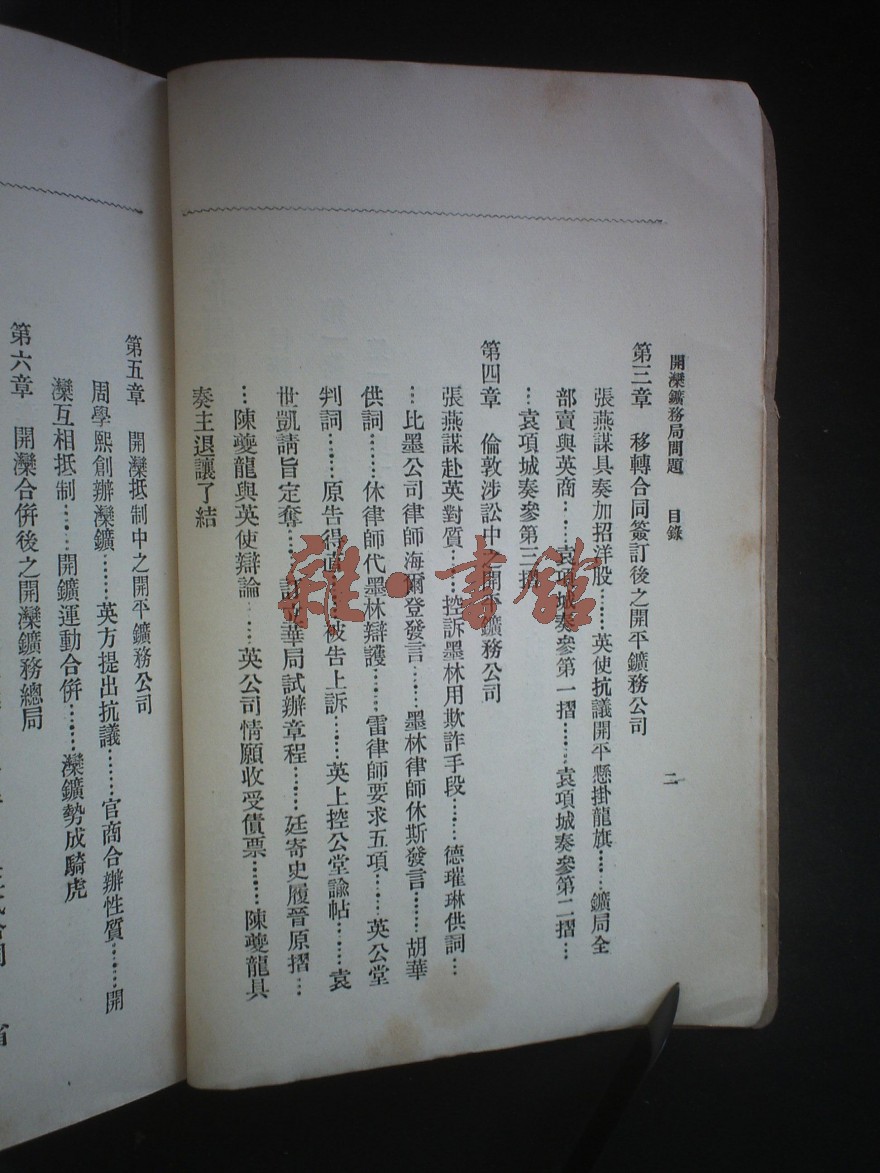 開灤鑛務局問題　目錄
二
第三章　移轉合同簽訂後之開平鑛務公司
張燕謀具奏加招洋股……英使抗議開平懸掛龍旗……鑛局全
部賣與英商……袁項城奏參第一摺……袁項城奏參第二摺…
…袁項城奏參第三摺
第四章　倫敦涉訟中之開平鑛務公司
張燕謀赴英對質……控訴墨林用欺詐手段……德璀琳供詞…
…比墨公司律師海爾登發言……墨林律師休斯發言……胡華
供詞……休律師代墨林辯護……雷律師要求五項……英公堂
判詞……原告得直……被告上訴……英上控公堂諭帖……袁
世凱請旨定奪……設立華局試辦章程……廷寄史履晉原摺…
…陳夔龍與英使辯論……英公司情願收受債票……陳夔龍具
奏主退讓了結
第五章　開灤抵制中之開平鑛務公司
周學熙創辦灤鑛……英方提出抗議……官商合辦性質……開
灤互相抵制……開鑛運動合併……灤鑛勢成騎虎
第六章　開灤合併後之開灤鑛務總局
雜·書館